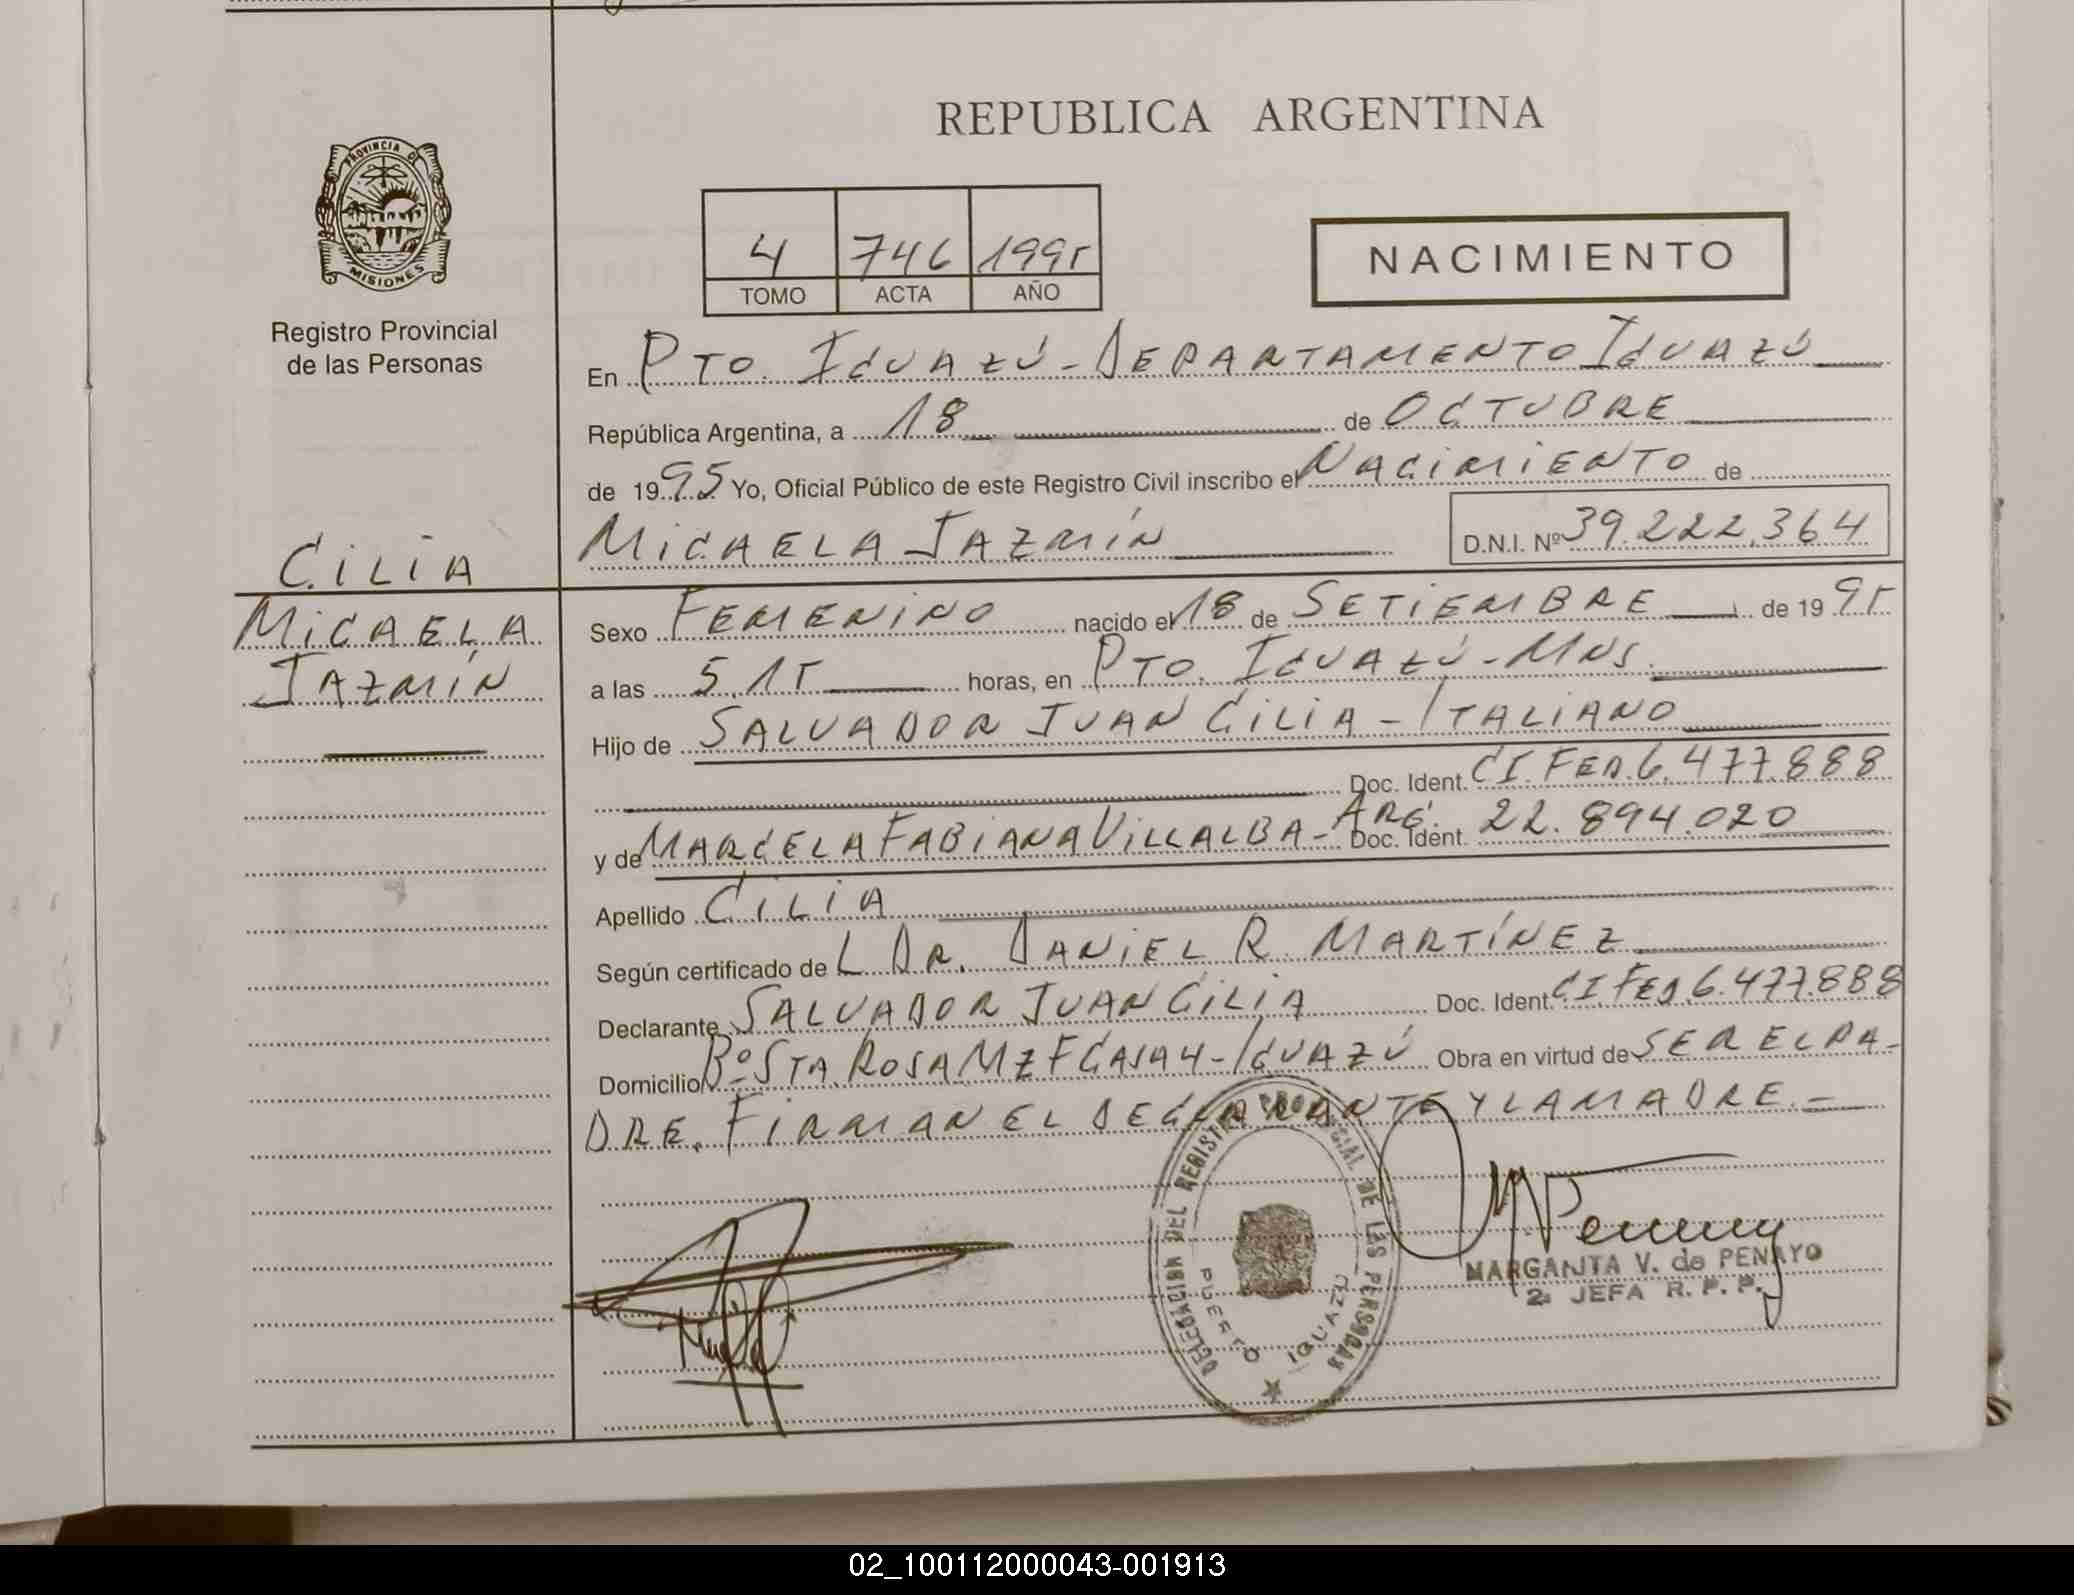 REPUBLICA ARGENTINA
PROVINCIA DE
MISIONES
Registro Provincial
de las Personas
4 746 1995
TOMO ACTA AÑO
NACIMIENTO
En PTO. IGUAZÚ - DEPARTAMENTO IGUAZÚ
República Argentina, a 18 de OCTUBRE
de 1995 Yo, Oficial Público de este Registro Civil inscribo el NACIMIENTO de
MICAELA JAZMÍN D.N.I. Nº 39.222.364
CILIA
MICAELA
JAZMÍN
Sexo FEMENINO nacido el 18 de SETIEMBRE de 1995
a las 5,15 horas, en PTO. IGUAZÚ - MNS.
Hijo de SALVADOR JUAN CILIA - ITALIANO
Doc. Ident. CI. FED. 6.477.888
y de MARCELA FABIANA VILLALBA - ARG. Doc. Ident. 22.894.020
Apellido CILIA
Según certificado de L DR. DANIEL R. MARTÍNEZ
Declarante SALVADOR JUAN CILIA Doc. Ident. CI. FED. 6.477.888
Domicilio Bº STA. ROSA MZ F CASA 4 - IGUAZÚ Obra en virtud de SER EL PA-
DRE. FIRMAN EL DECLARANTE Y LA MADRE. -
DELEGACION DEL REGISTRO PROVINCIAL DE LAS PERSONAS
PUERTO IGUAZU
MARGARITA V. de PENAYO
2ª JEFA R. P. P.
02_100112000043-001913